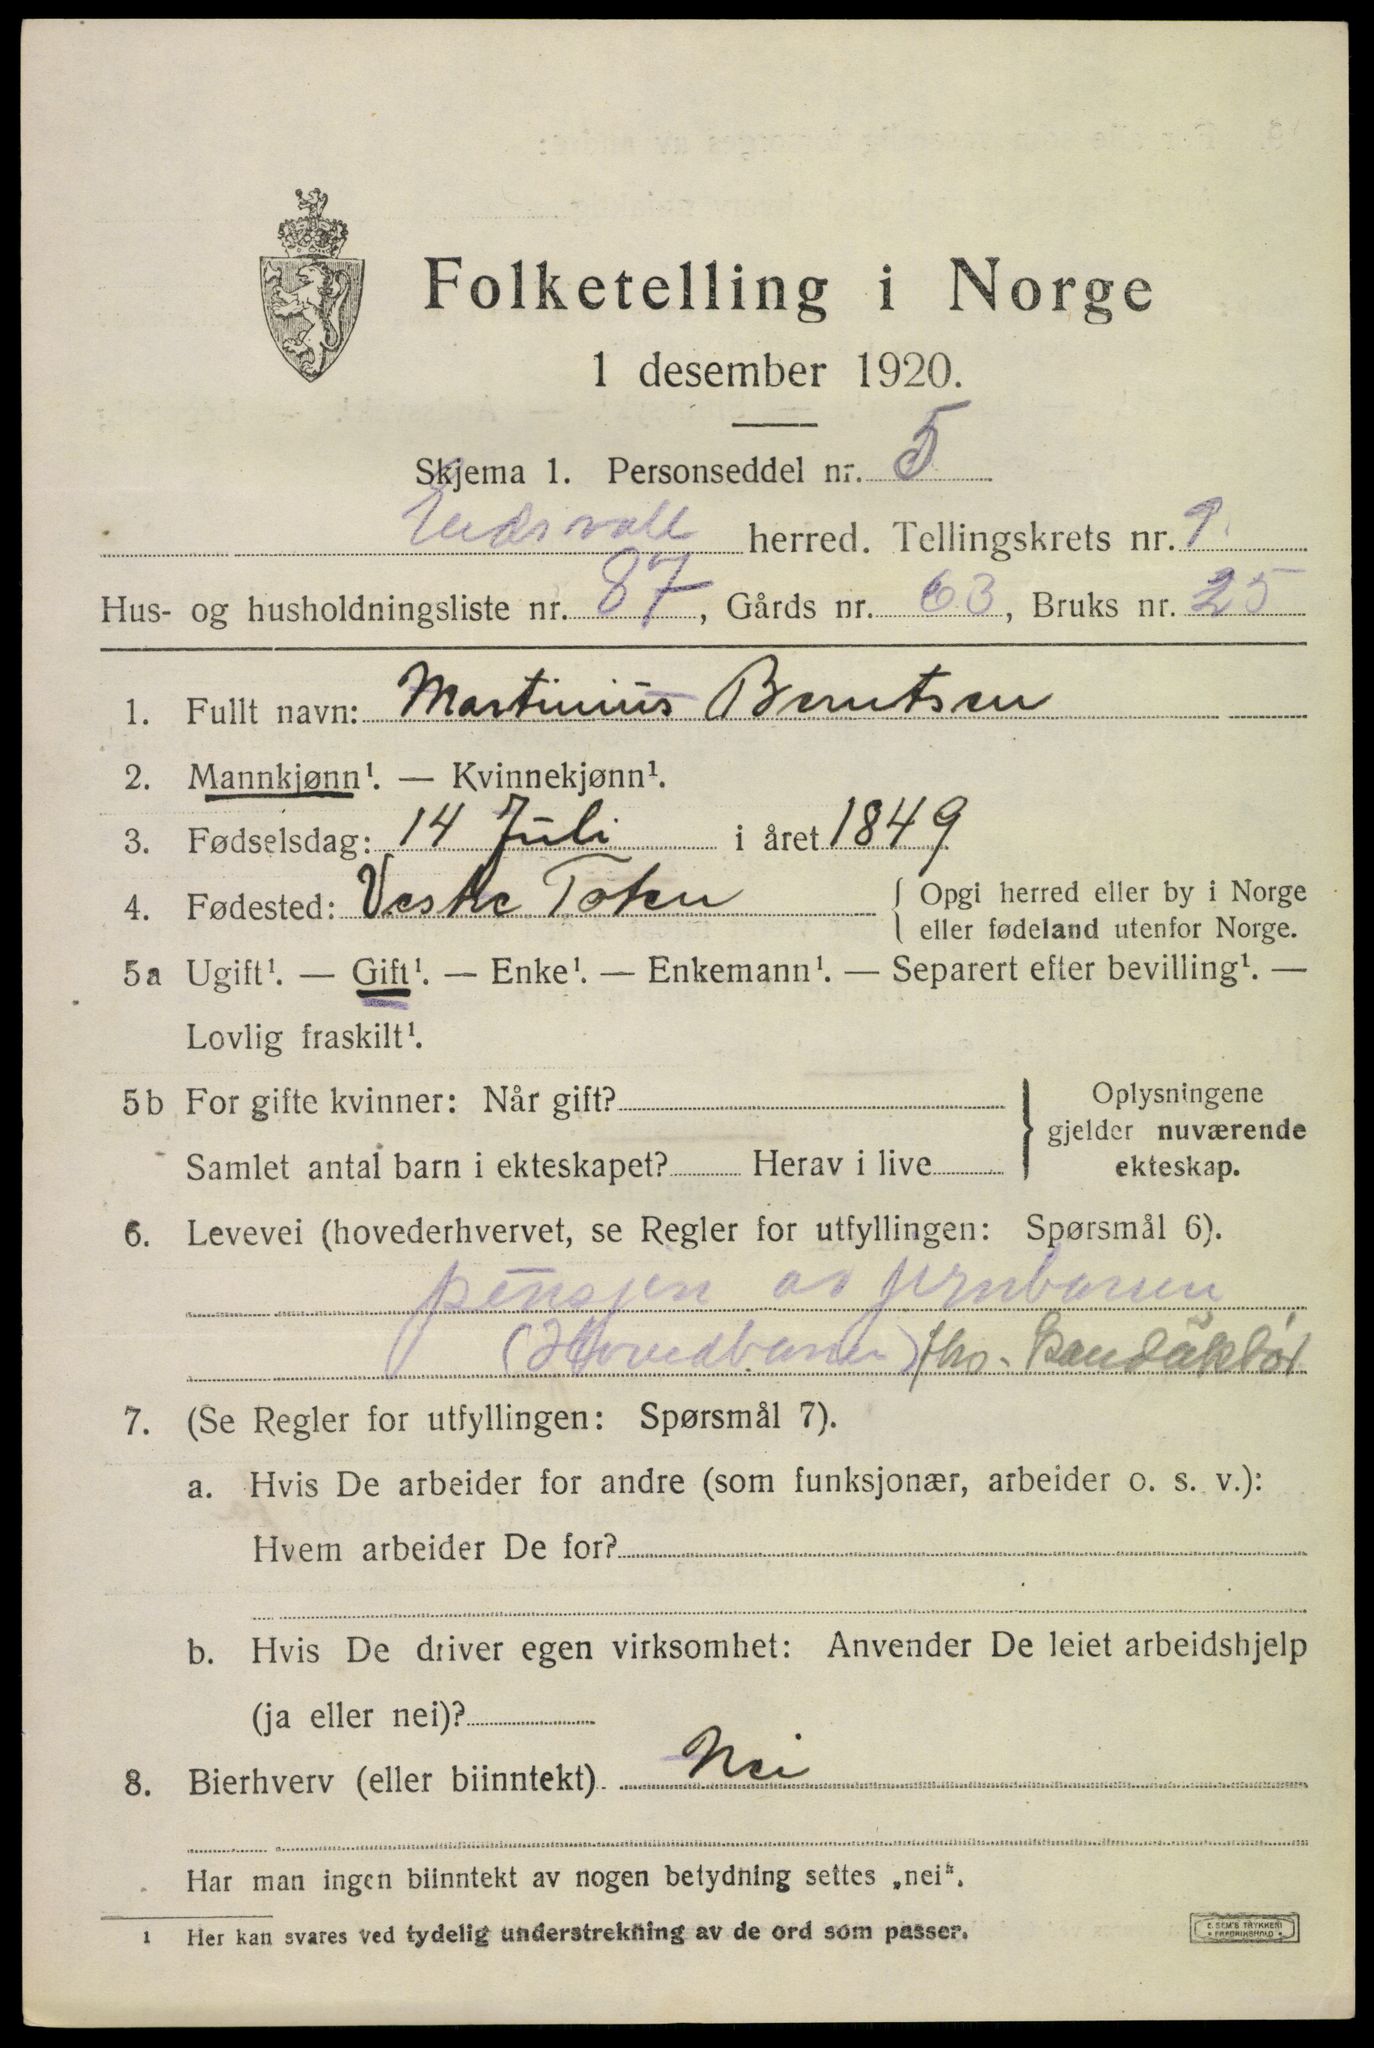 Folketelling i Norge
1 desember 1920.
Skjema 1. Personseddel nr. 5
Eidsvoll herred. Tellingskrets nr. 9.
Hus- og husholdningsliste nr. 87, Gårds nr. 63, Bruks nr. 25
1. Fullt navn: Martinius Berntsen
2. Mannkjønn¹. — Kvinnekjønn¹.
3. Fødselsdag: 14 Juli i året 1849
4. Fødested: Vestre Toten { Opgi herred eller by i Norge
eller fødeland utenfor Norge.
5a Ugift¹. — Gift¹. — Enke¹. — Enkemann¹. — Separert efter bevilling¹. —
Lovlig fraskilt¹.
5b For gifte kvinner: Når gift? } Oplysningene
gjelder nuværende
Samlet antal barn i ekteskapet? Herav i live ekteskap.
6. Levevei (hovederhvervet, se Regler for utfyllingen: Spørsmål 6).
pensjon av jernbanen
(Hovedbanen) fhv.
7. (Se Regler for utfyllingen: Spørsmål 7).
a. Hvis De arbeider for andre (som funksjonær, arbeider o. s. v.):
Hvem arbeider De for?
b. Hvis De driver egen virksomhet: Anvender De leiet arbeidshjelp
(ja eller nei)?
8. Bierhverv (eller biinntekt) Nei
Har man ingen biinntekt av nogen betydning settes „nei".
1 Her kan svares ved tydelig understrekning av de ord som passer.
E. SEM'S TRYKKERI
• FREDRIKSHALD •